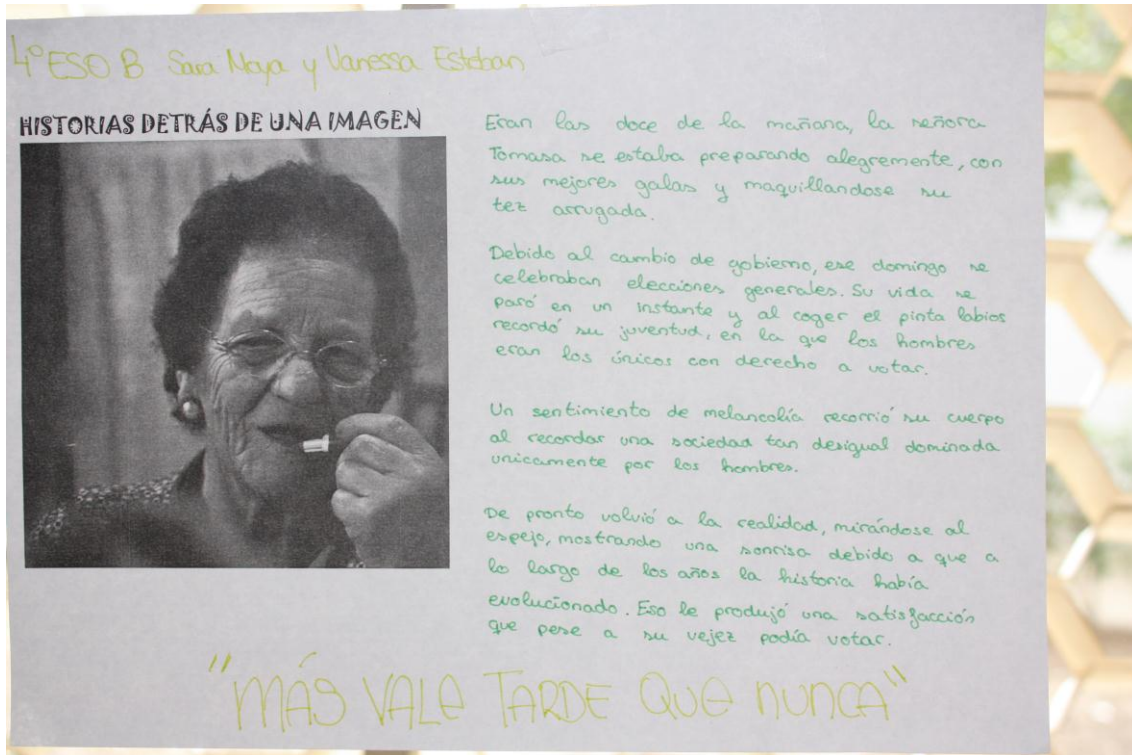 4º ESO B Sara Moya y Vanessa Esteban
HISTORIAS DETRÁS DE UNA IMAGEN
Eran las doce de la mañana, la señora
Tomasa se estaba preparando alegremente, con
sus mejores galas y maquillandose su
tez arrugada.
Debido al cambio de gobierno, ese domingo se
celebraban elecciones generales. Su vida se
paró en un instante y al coger el pinta labios
recordó su juventud, en la que los hombres
eran los únicos con derecho a votar.
Un sentimiento de melancolía recorrió su cuerpo
al recordar una sociedad tan desigual dominada
unicamente por los hombres.
De pronto volvió a la realidad, mirándose al
espejo, mostrando una sonrisa debido a que a
lo largo de los años la historia había
evolucionado. Eso le produjó una satisfacción
que pese a su vejez podía votar.
"MÁS VALE TARDE QUE NUNCA"